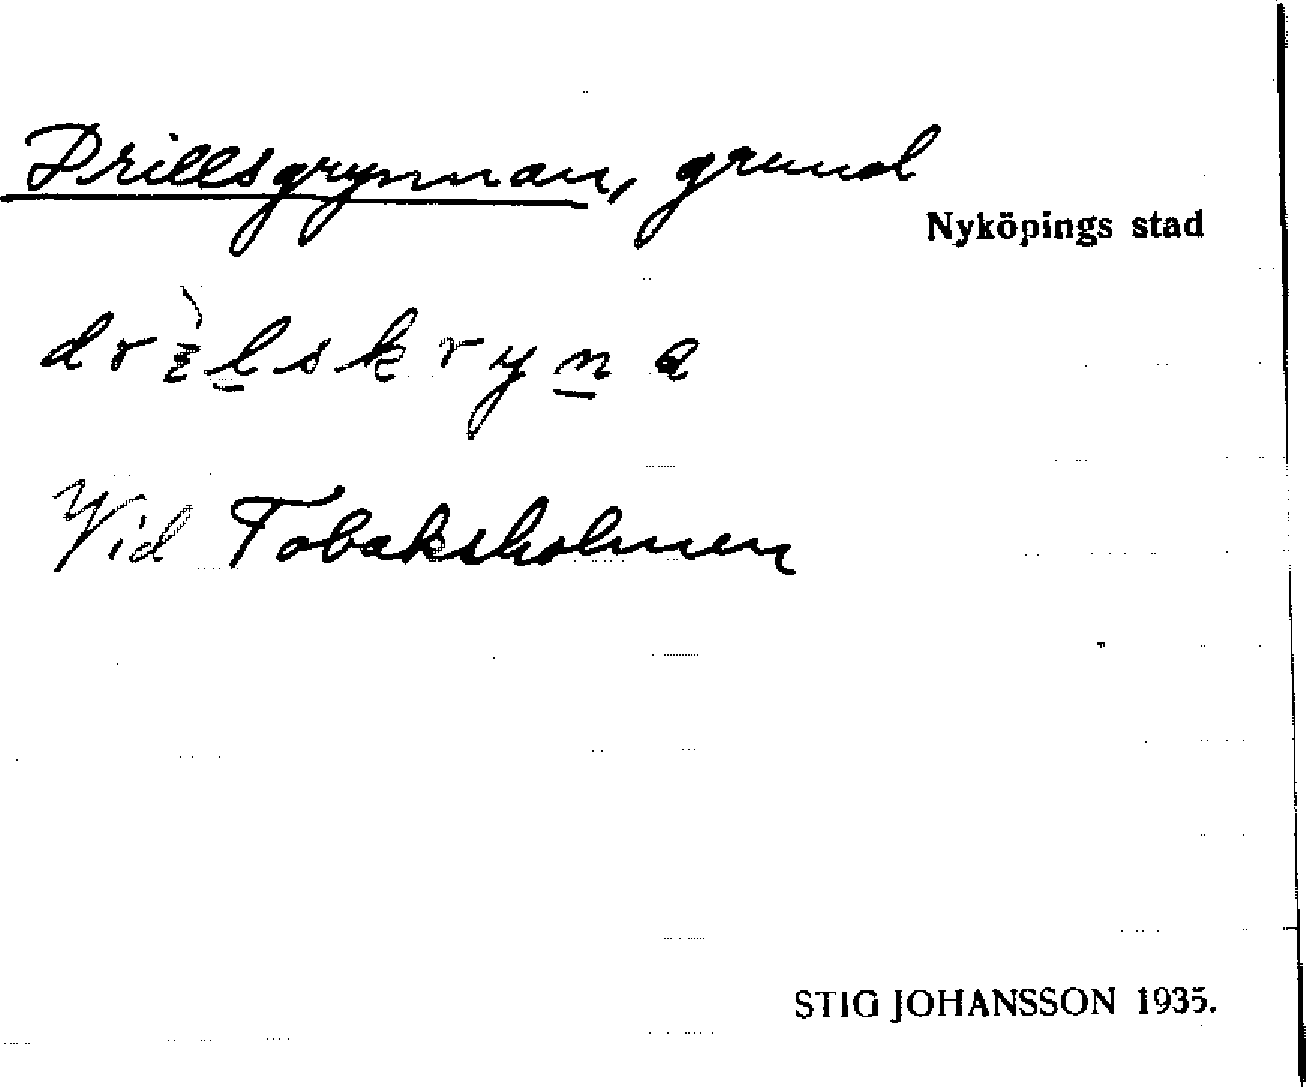 Drillsgrynnan, grund
Nyköpings stad
drìlskryna
Vid Tobaksholmen
STIG JOHANSSON 1935.